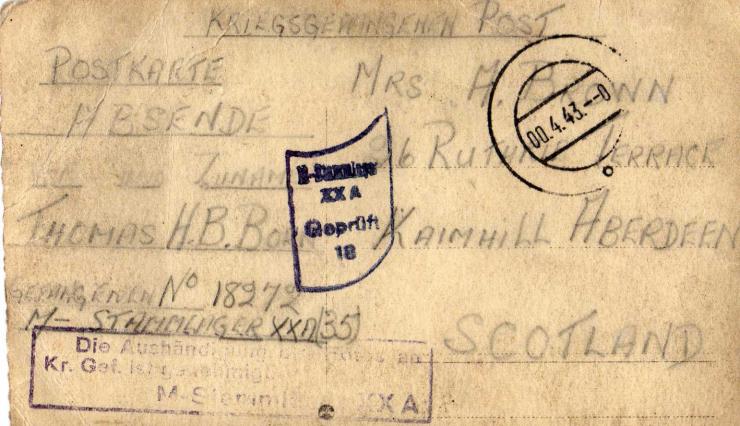 KRIEGSGEFANGENEN POST
POSTKARTE
ABSENDE
UND ZUNAM
THOMAS H.B.
GEFANGENEN No 18272
M- STAMMLAGER XXA (35)
MRS A. BROWN
36 TERRACE
KAIMHILL ABERDEEN
SCOTLAND
00.4.43.--0
M-Stammlager
XX A
Geprüft
18
Die Aushändigung an
Kr. Gef. ist genehmigt
M-Stamml XX A